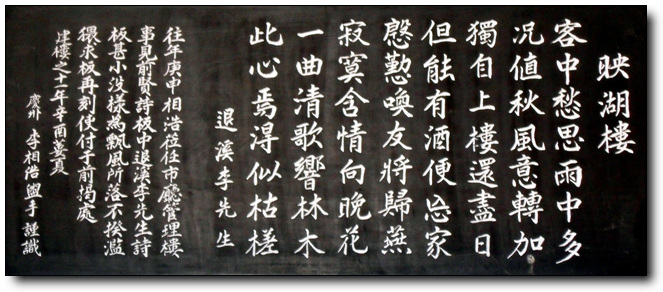 映湖樓
客中愁思雨中多
況值秋風意轉加
獨自上樓還盡日
但能有酒便忘家
慇懃喚友將歸燕
寂寞含情向晚花
一曲清歌響林木
此心焉得似枯槎
退溪李先生
往年庚申相浩莅任市廳管理樓
事見前賢詩板中退溪李先生詩
板甚小没様為飄風所落不揆濫
猥求板再刻使付于前揭處
樓之十一年辛酉夏
慶州 李相浩 盥手 謹識